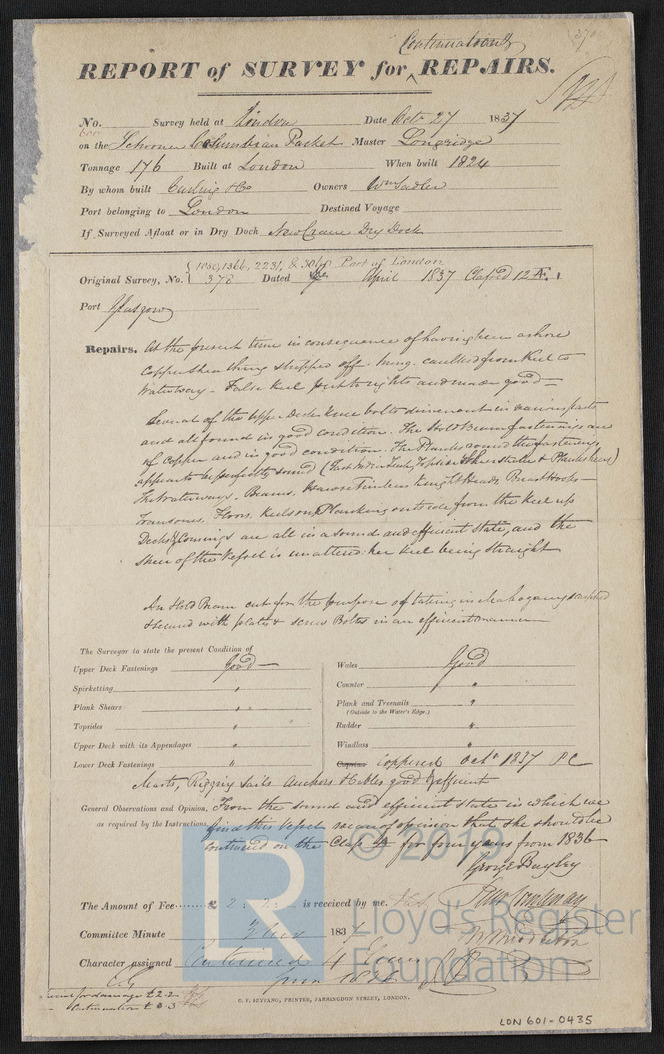 Continuation &
REPORT of SURVEY for REPAIRS.
No. Survey held at London Date Octr 27 1837
on the Schooner Columbian Packet Master Longridge
Tonnage 176 Built at London When built 1824
By whom built Curling & Co Owners Wm Sadler
Port belonging to London Destined Voyage
If Surveyed Afloat or in Dry Dock New Crane Dry Dock
1050, 1366, 2231, & 3068 Port of London
Original Survey, No. 378 Dated April 1837 Classed 12 A. 1
Port Glasgow
Repairs. At the present time in consequence of having been ashore
Copper sheathing stripped off caulked from Keel to
Waterway - False Keel put to rights and made good
Several of the upper Deck Knee bolts driven out in various parts
and all found in good condition. The Hold Beam fastenings are
of copper and in good condition. The Planks round the fastenings
appear to be perfectly sound
The Waterways. Beams. Hawse Timbers Knight Heads. Breast Hooks
Transoms. Floors. Keelsons Planking outside from the Keel up
Decks & Comings are all in a sound and efficient state, and the
sheer of the Vessel is unaltered her keel being straight
An Hold Beam cut for the purpose of taking in Mahogany scarphed
& secured with plates & screw Bolts in an efficient manner
The Surveyor to state the present Condition of
Upper Deck Fastenings Good
Spirketting "
Plank Shears "
Topsides "
Upper Deck with its Appendages "
Lower Deck Fastenings "
Wales Good
Counter "
Plank and Treenails "
(Outside to the Water's Edge.)
Rudder "
Windlass "
Capstan Coppered Octr 1837 PC
Masts, Rigging Sails Anchors & Cables good & efficient
General Observations and Opinion, From the sound and efficient states in which we
as required by the Instructions. find this Vessel we are of opinion that she should be
Continued on the Class A for four years from 1836
George Bayley
The Amount of Fee £ 2 : 2 : is received by me.
Committee Minute 1837
Character assigned Continued 4 Years
from 1836
Survey for damage £2.2
Continuation £3.3
C. F. SEYFANG, PRINTER, FARRINGDON STREET, LONDON.
LON 601-0435
© 2019
LR
Lloyd's Register
Foundation